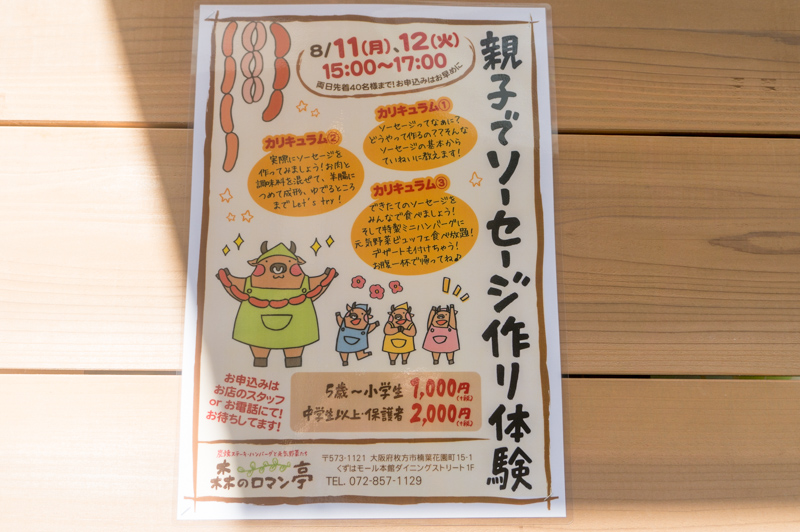 親子でソーセージ作り体験
8/11(月)、12(火)
15:00〜17:00
両日先着40名様まで!お申込みはお早めに
カリキュラム①
ソーセージってなぁに?
どうやって作るの??そんな
ソーセージの基本から
ていねいに教えます!
カリキュラム②
実際にソーセージを
作ってみましょう!お肉と
調味料を混ぜて、羊腸に
つめて成形、ゆでるところ
までLet's try!
カリキュラム③
できたてのソーセージを
みんなで食べましょう!
そして特製ミニハンバーグに
元気野菜ビュッフェ食べ放題!
デザートも付けちゃう!
お腹一杯で帰ってね♪
5歳〜小学生 1,000円
(+税)
中学生以上・保護者 2,000円
(+税)
お申込みは
お店のスタッフ
or お電話にて!
お待ちしてます!
森のロマン亭
〒573-1121 大阪府枚方市楠葉花園町15-1
くずはモール本館ダイニングストリート1F
TEL. 072-857-1129